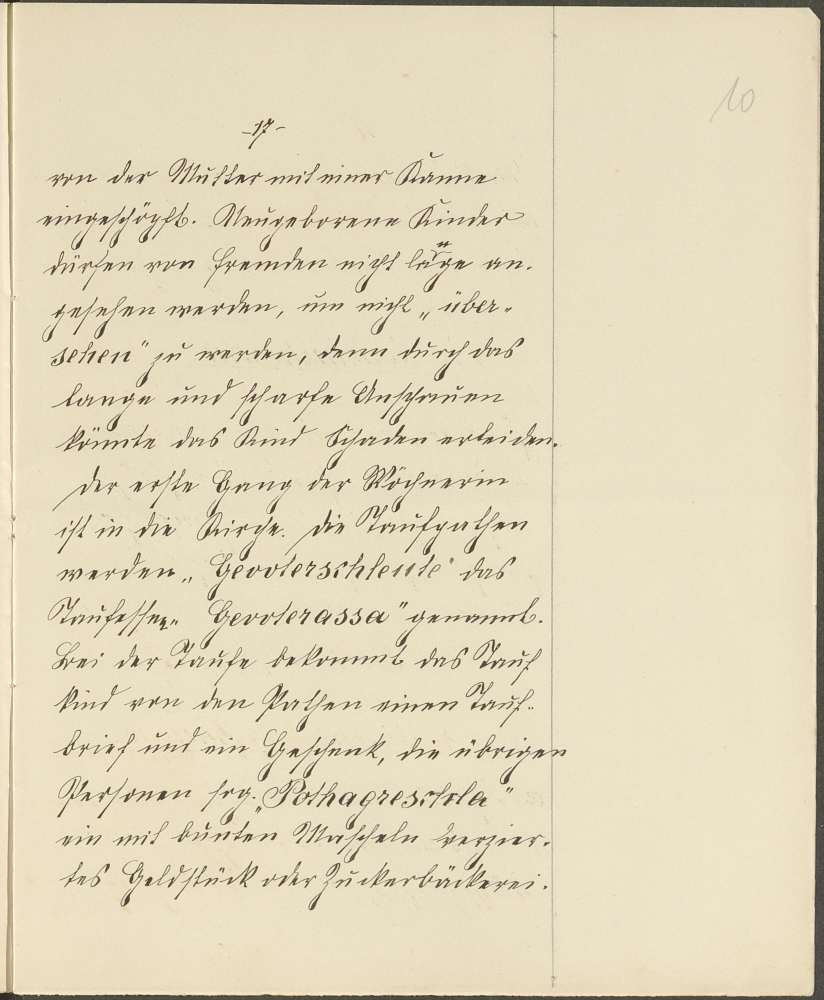 10
-17-
von der Mutter mit einer Kanne
eingeschöpft. Neugeborene Kinder
dürfen von Fremden nicht läge an-
gesehen werden, um nicht „über-
sehen" zu werden, denn durch das
lange und scharfe Anschauen
könnte das Kind Schaden erleiden.
Der erste Gang der Wöchnerin
ist in die Kirche. Die Taufpathen
werden „Gevoterschleute" das
Taufessen „Gevoterassa" genannt.
Bei der Taufe bekommt das Tauf
kind von den Pathen einen Tauf-
brief und ein Geschenk, die übrigen
Personen sog. „Pothagreschola"
ein mit bunten Mascheln verzier-
tes Geldstück oder Zuckerbäckerei.